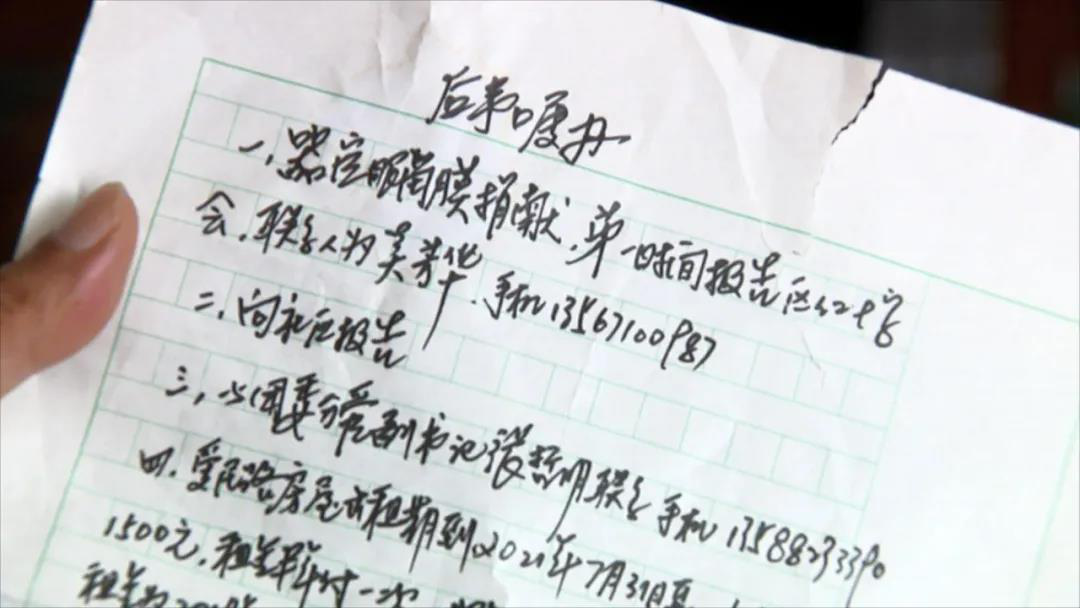 后事嘱办
一、器官眼角膜捐献，第一时间报告区红十字
会，联系人为吴美华，手机13567100987
二、向社区报告
三、与团委分管副书记张哲明联系 手机13588233390
四、爱民路房屋出租期到2021年7月31日
1500元，租金半年付一次
租金